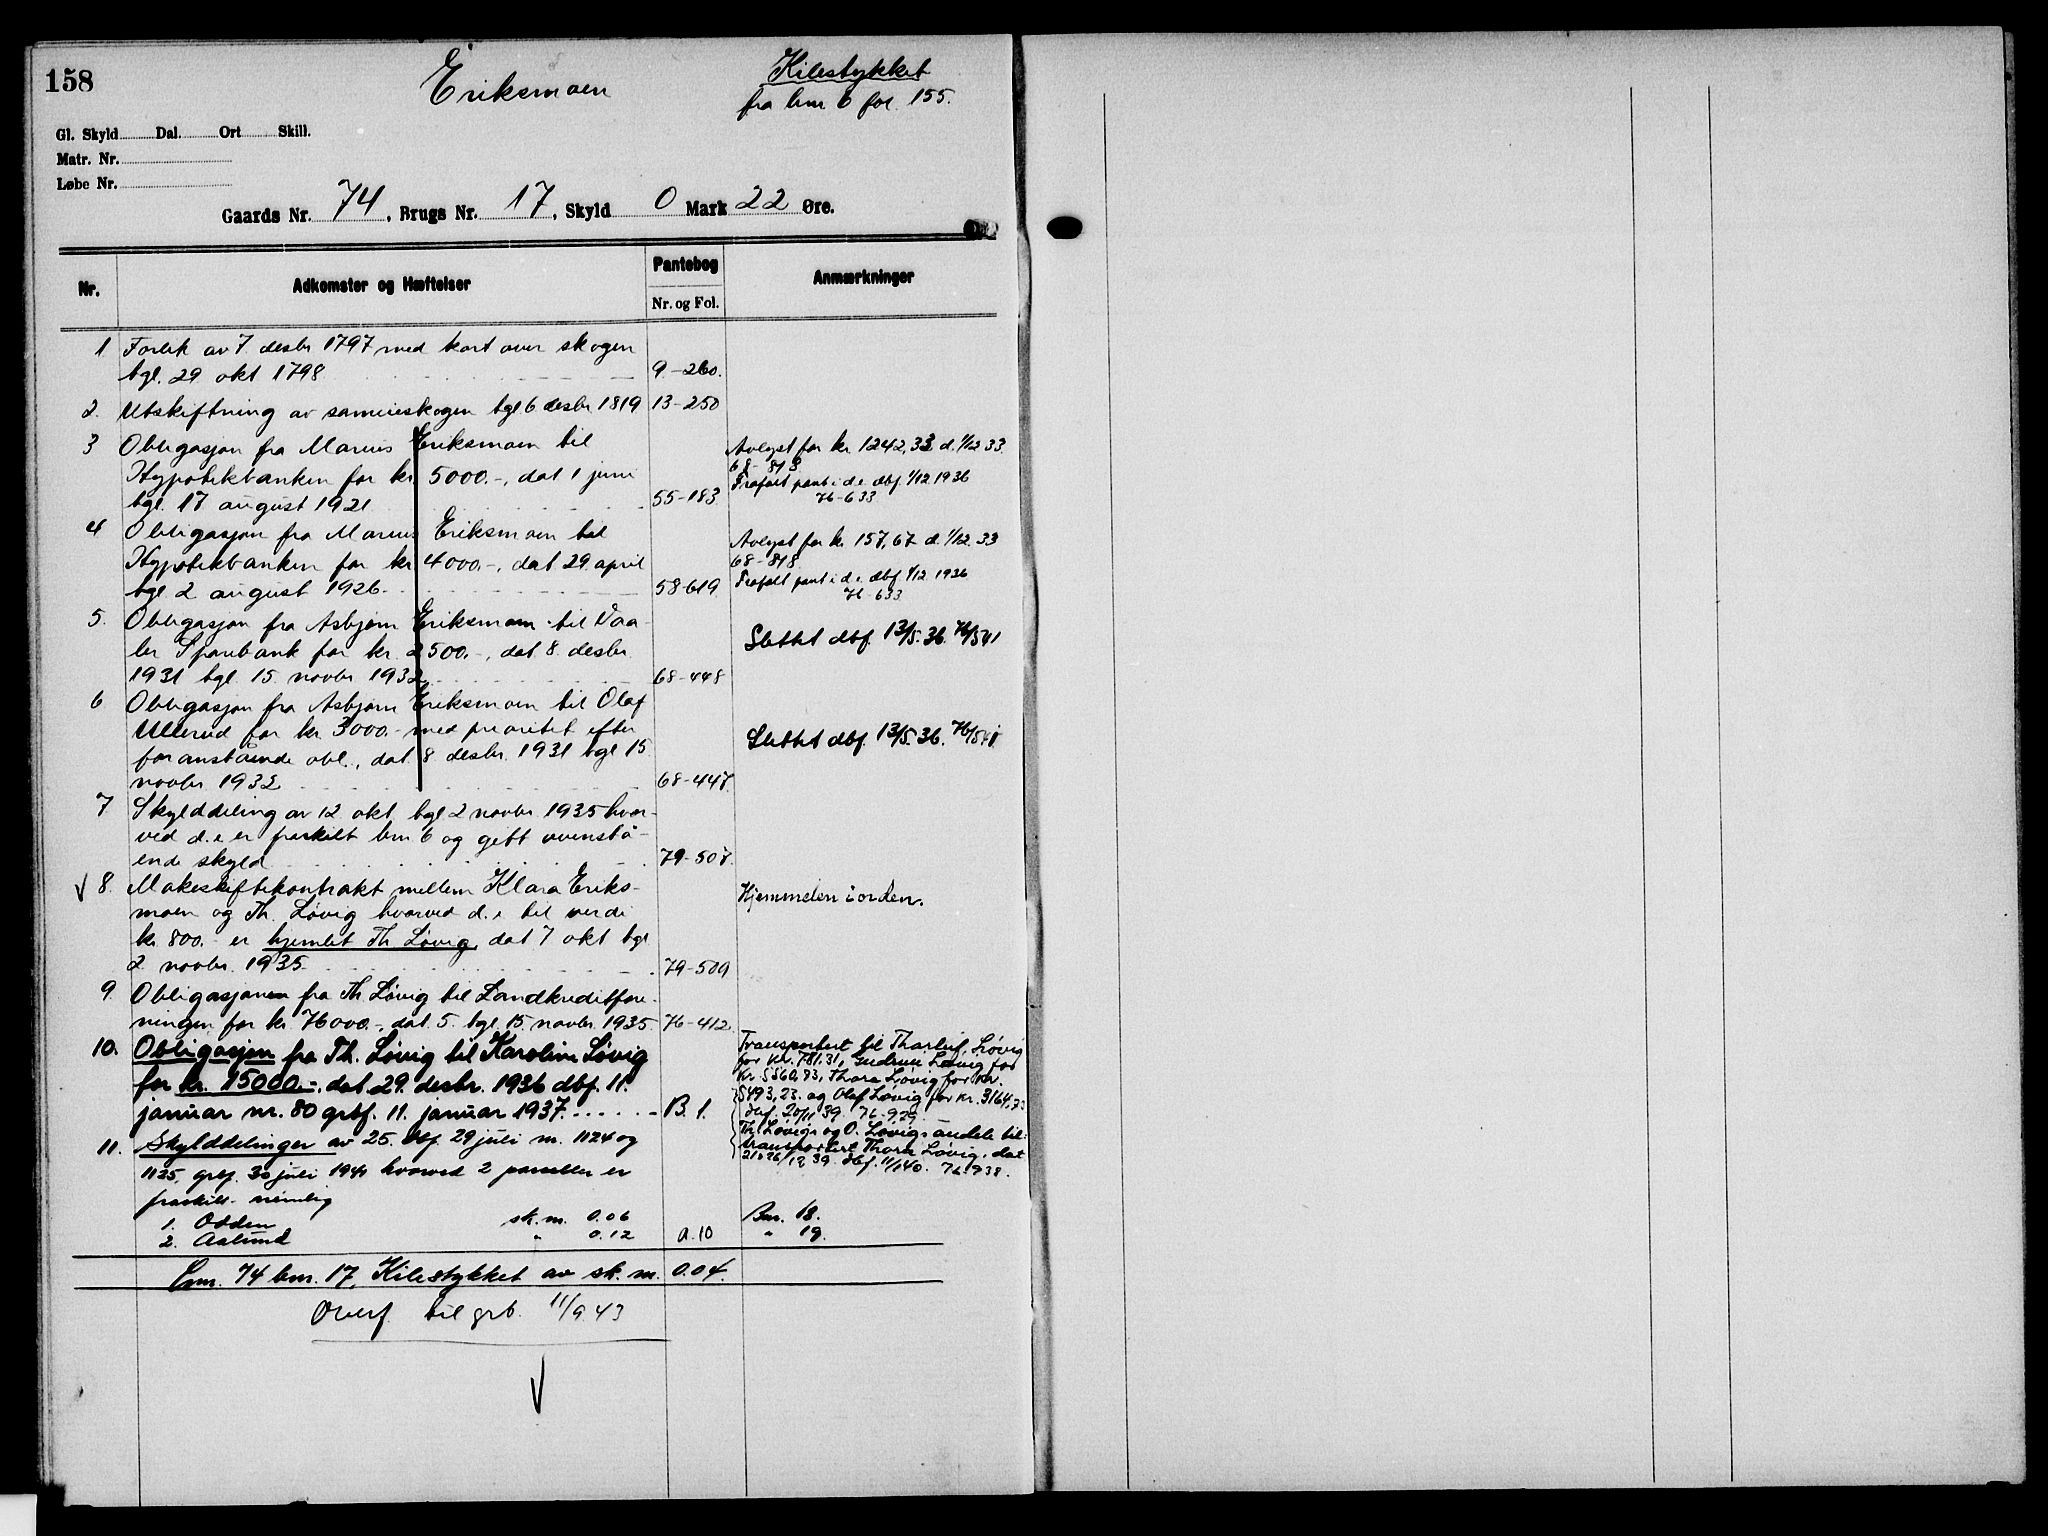 158
Eriksmoen
Kilestykket
fra bnr 6 fol. 155.
Gl. Skyld Dal. Ort Skill.
Matr. Nr.
Løbe Nr.
Gaards Nr. 74, Brugs Nr. 17, Skyld 0 Mark 22 Øre.
Nr. Adkomster og Hæftelser Pantebog Nr. og Fol. Anmærkninger
1 Forlik av 7 desbr 1797 med kart over skogen
tgl. 29 okt 1798 9-260.
2. Utskiftning av sameieskogen tgl 6 desbr 1819 13-250
3 Obligasjon fra Marius Eriksmoen til
Hypotekbanken for kr 5000.-, dat 1 juni
tgl. 17 august 1921 55-183
Avlyst for kr 1242,33 d. 1/12 33
68-878
Frafalt pant i d.e. dbf 1/12 1936
76-633
4 Obligasjon fra Marius Eriksmoen til
Hypotekbanken for kr 4000.-, dat 29. april
tgl 2 august 1926. 58-619
Avlyst for kr 157,67 d. 1/12. 33
68-878
Frafalt pant i d.e. dbf 1/12 1936
76-633
5. Obligasjon fra Asbjørn Eriksmoen til Vaa-
ler Sparebank for kr 2500.-, dat. 8. desbr
1931 tgl. 15 novbr 1932 68-448
Slettet dbf. 13/5. 36. 76/541
6 Obligasjon fra Asbjørn Eriksmoen til Olaf
Ullerud for kr 3000.- med prioritet efter
foranstående obl., dat. 8 desbr. 1931 tgl 15
novbr 1932 68-447.
Slettet dbf. 13/5. 36. 76/541
7 Skylddeling av 12 okt, tgl 2 novbr 1935 hvor-
ved d.e er fraskilt bnr 6 og gitt ovenstå-
ende skyld 79-507.
8. Makeskiftekontrakt mellem Klara Eriks-
moen og Th. Løvig hvorved d.e til verdi
kr 800.- er hjemlet Th Løvig, dat 7 okt tgl
2 novbr. 1935. 79-509
Hjemmelen i orden.
9. Obligasjonen fra Th Løvig til Landkreditfore-
ningen for kr. 76000.-, dat. 5. tgl. 15. novbr. 1935. 76-412
10. Obligasjon fra Th. Løvig til Karoline Løvig
for kr. 15000.-, dat 29. desbr. 1936 dbf. 11.
januar nr. 80 grbf. 11. januar 1937. B. 1.
Transportert til Thorleif Løvig
for kr. 781.31, Gudrun Løvig for
kr. 5560,83, Thora Løvig for kr.
5493,23. og Olaf Løvig for kr. 3164,73
dbf. 20/11 39. 76-929.
Th. Løvigs og O. Løvigs andele til-
transportert Thora Løvig, dat
21 & 26/12 39. dbf. 11/1 40. 76-938.
11. Skylddelinger av 25. dbf 29 juli nr. 1124 og
1125, grbf. 30 juli 1941 hvorved 2 parseller er
fraskilt nemlig
1. Odden sk. m. 0.06 Bnr. 18.
2. Aalund " 0.12 A. 10 " 19.
Gnr. 74 bnr. 17, Kilestykket av sk. m. 0.04.
Overf. til grb. 11/9 43